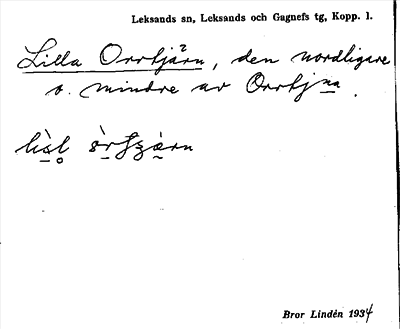 Leksands sn, Leksands och Gagnefs tg, Kopp. l.
Lilla Orrtjärn, den nordligare
o. mindre av Orrtjna.
Bror Lindén 1934